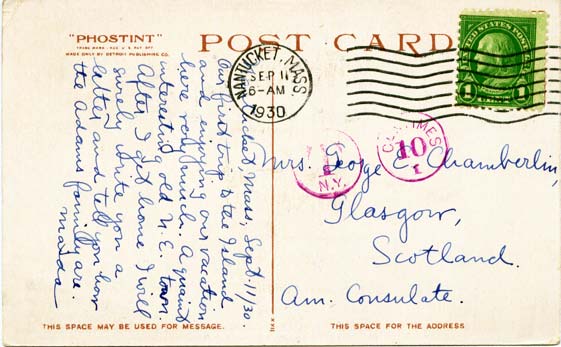 "PHOSTINT"
TRADE MARK REG. U.S. PAT. OFF.
MADE ONLY BY DETROIT PUBLISHING CO.
POST CARD
NANTUCKET, MASS
SEP 11
6-AM
1930
UNITED STATES POSTAGE
1 1
Nantucket Mass, Sept. 11/30.
Our first trip to the Island
and enjoying our vacation
here very much. A quaint
interesting old N. E. town.
After I get home I will
surely write you a
letter and tell you how
the Adams family are.
Maida
N.Y.
10
Mrs. George E. Chamberlin,
Glasgow,
Scotland.
Am. Consulate.
THIS SPACE MAY BE USED FOR MESSAGE.
THIS SPACE FOR THE ADDRESS